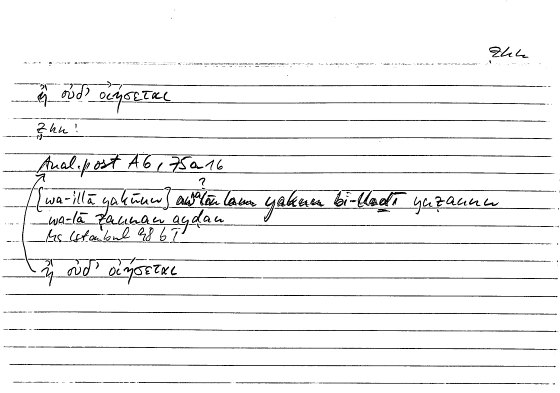 ẓnn
ἢ οὐδ’ οἰήσεται
ẓnn:
Anal. post A6, 75a16
?
[wa-illā yakūnu] lam yakun bi-lladī yaẓannu
wa-lā ẓannan ayḍan
Ms Istanbul
ἢ οὐδ’ οἰήσεται